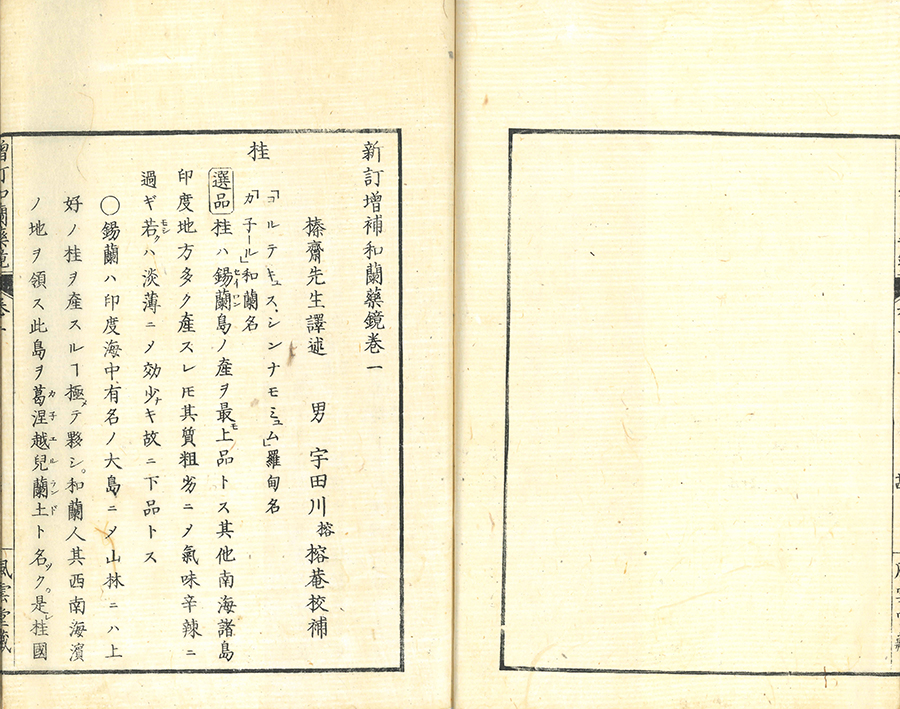 新訂增補和蘭藥鏡巻一
榛齋先生譯述 男 宇田川榕 榕菴校補
桂
「コルテキュス、シンナモミュム」羅甸名
「カ子ール」和蘭名
選品 桂ハ錫蘭島ノ產ヲ最モ上品トス其他南海諸島
印度地方多ク產スレ𪜈其質粗劣ニ〆氣味辛辣ニ
過ギ若クハ淡薄ニ〆効少キ故ニ下品トス
〇錫蘭ハ印度海中有名ノ大島ニ〆山林ニハ上
好ノ桂ヲ產スルヿ極テ夥シ。和蘭人其西南海濱
ノ地ヲ領ス此島ヲ葛涅越兒蘭土ト名ツク。是レ桂國
風雲堂藏